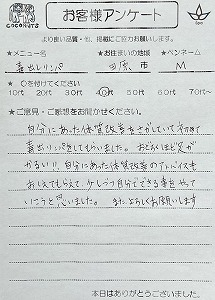 COCORUTZ
お客様アンケート
より良い品質・他、掲載にご協力お願いします。
★メニュー名 ★お住まいの地域 ★ペンネーム
毒出しリンパ 市 M
★○を付けてください
10代 20代 30代 40代 50代 60代 70代〜
★ご意見・ご感想をお聞かせください。
自分にあった体質改善をさがしていて初めて
毒出しリンパをしてもらいました。おどろくほど足が
かるい!! 自分にあった体質改善のアドバイスも
おしえてもらえて、少しづつ自分でできる事をやって
いこうと思いました。またよろしくお願いします
本日はありがとうございました。